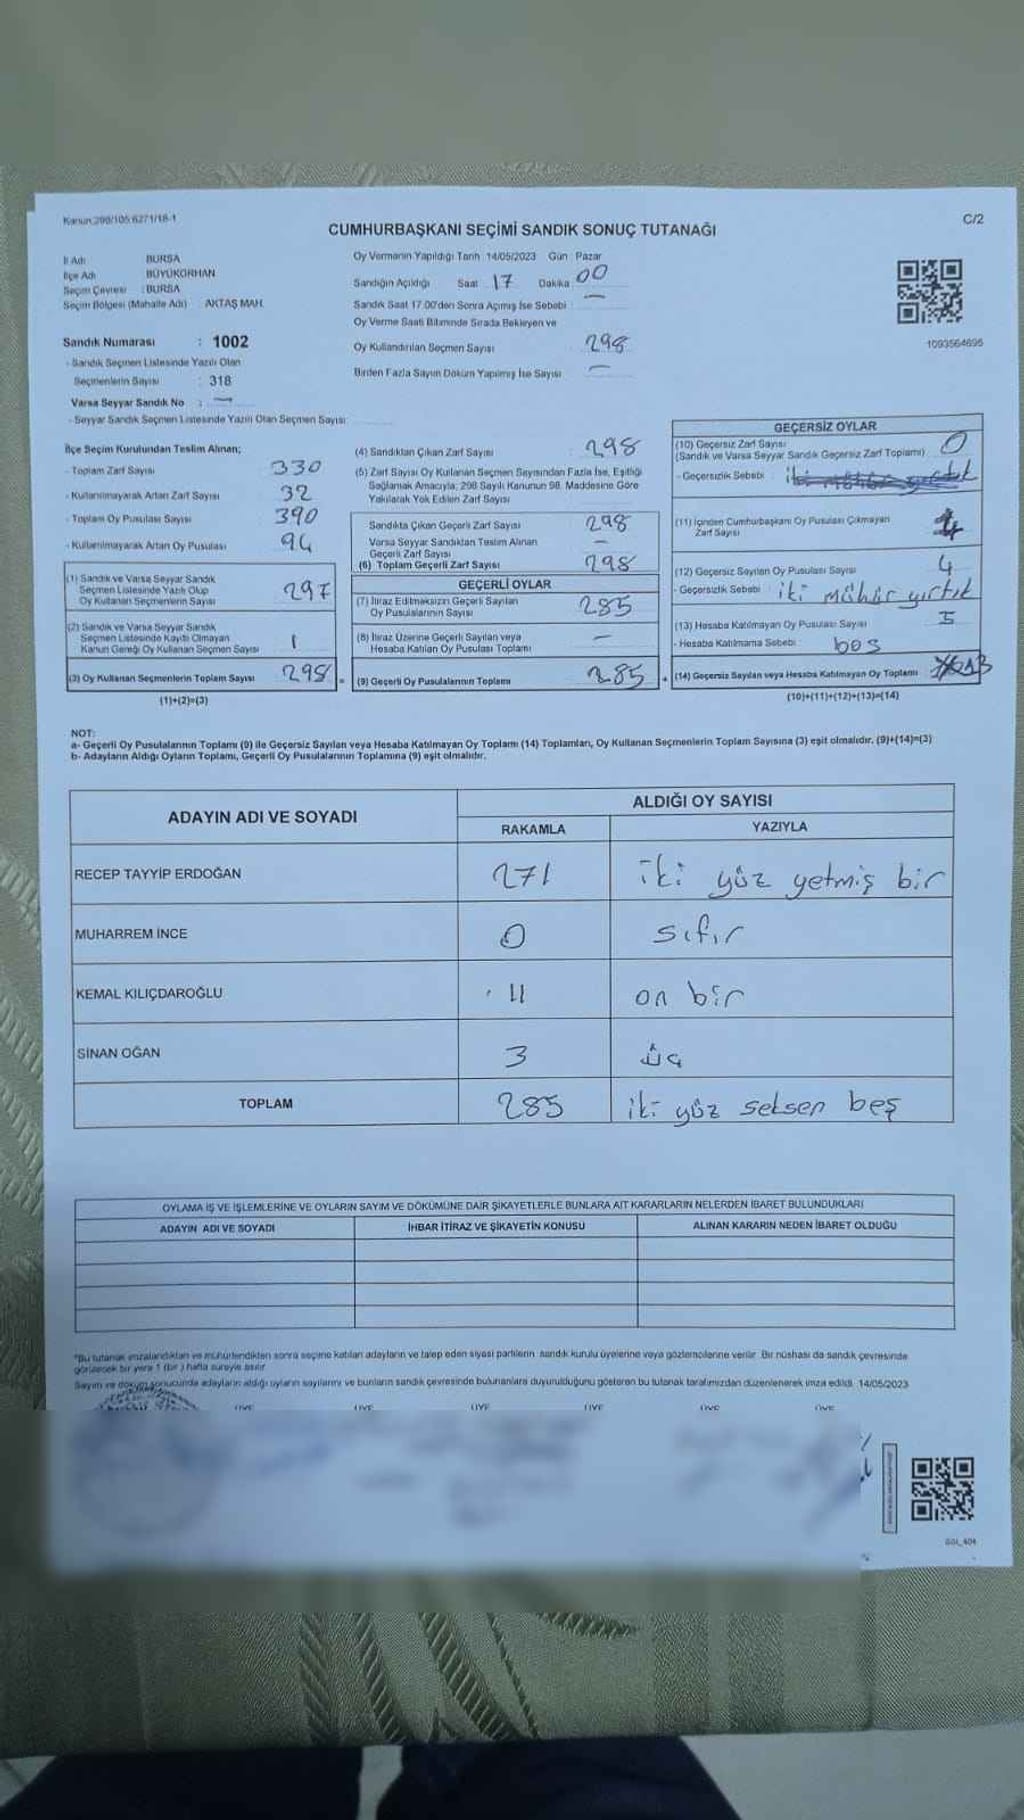 Kanun:298/105:6271/18-1
C/2
CUMHURBAŞKANI SEÇİMİ SANDIK SONUÇ TUTANAĞI
İl Adı BURSA
İlçe Adı BÜYÜKORHAN
Seçim Çevresi : BURSA
Seçim Bölgesi (Mahalle Adı) AKTAŞ MAH.
Sandık Numarası : 1002
- Sandık Seçmen Listesinde Yazılı Olan
Seçmenlerin Sayısı : 318
Varsa Seyyar Sandık No : —
- Seyyar Sandık Seçmen Listesinde Yazılı Olan Seçmen Sayısı
Oy Vermenin Yapıldığı Tarih 14/05/2023 Gün Pazar
Sandığın Açıldığı Saat 17 Dakika 00
Sandık Saat 17.00'den Sonra Açılmış İse Sebebi —
Oy Verme Saati Bitiminde Sırada Bekleyen ve
Oy Kullandırılan Seçmen Sayısı 298
Birden Fazla Sayım Döküm Yapılmış İse Sayısı —
1093564695
İlçe Seçim Kurulundan Teslim Alınan;
- Toplam Zarf Sayısı 330
- Kullanılmayarak Artan Zarf Sayısı 32
- Toplam Oy Pusulası Sayısı 390
- Kullanılmayarak Artan Oy Pusulası 94
(1) Sandık ve Varsa Seyyar Sandık
Seçmen Listesinde Yazılı Olup
Oy Kullanan Seçmenlerin Sayısı 297
(2) Sandık ve Varsa Seyyar Sandık
Seçmen Listesinde Kayıtlı Olmayan
Kanun Gereği Oy Kullanan Seçmen Sayısı 1
(3) Oy Kullanan Seçmenlerin Toplam Sayısı 298
(1)+(2)=(3)
(4) Sandıktan Çıkan Zarf Sayısı : 298
(5) Zarf Sayısı Oy Kullanan Seçmen Sayısından Fazla İse, Eşitliği
Sağlamak Amacıyla; 298 Sayılı Kanunun 98. Maddesine Göre
Yakılarak Yok Edilen Zarf Sayısı
Sandıkta Çıkan Geçerli Zarf Sayısı 298
Varsa Seyyar Sandıktan Teslim Alınan
Geçerli Zarf Sayısı —
(6) Toplam Geçerli Zarf Sayısı 298
GEÇERLİ OYLAR
(7) İtiraz Edilmeksizin Geçerli Sayılan
Oy Pusulalarının Sayısı 285
(8) İtiraz Üzerine Geçerli Sayılan veya
Hesaba Katılan Oy Pusulası Toplamı —
(9) Geçerli Oy Pusulalarının Toplamı 285
GEÇERSİZ OYLAR
(10) Geçersiz Zarf Sayısı
(Sandık ve Varsa Seyyar Sandık Geçersiz Zarf Toplamı) 0
- Geçersizlik Sebebi : iki mühür yırtık
(11) İçinden Cumhurbaşkanı Oy Pusulası Çıkmayan
Zarf Sayısı 4
(12) Geçersiz Sayılan Oy Pusulası Sayısı 4
- Geçersizlik Sebebi : iki mühür yırtık
(13) Hesaba Katılmayan Oy Pusulası Sayısı 5
- Hesaba Katılmama Sebebi : boş
(14) Geçersiz Sayılan veya Hesaba Katılmayan Oy Toplamı 13
(10)+(11)+(12)+(13)=(14)
NOT:
a- Geçerli Oy Pusulalarının Toplamı (9) ile Geçersiz Sayılan veya Hesaba Katılmayan Oy Toplamı (14) Toplamları, Oy Kullanan Seçmenlerin Toplam Sayısına (3) eşit olmalıdır. (9)+(14)=(3)
b- Adayların Aldığı Oyların Toplamı, Geçerli Oy Pusulalarının Toplamına (9) eşit olmalıdır.
ADAYIN ADI VE SOYADI
ALDIĞI OY SAYISI
RAKAMLA YAZIYLA
RECEP TAYYİP ERDOĞAN 271 iki yüz yetmiş bir
MUHARREM İNCE 0 sıfır
KEMAL KILIÇDAROĞLU 11 on bir
SİNAN OĞAN 3 üç
TOPLAM 285 iki yüz seksen beş
OYLAMA İŞ VE İŞLEMLERİNE VE OYLARIN SAYIM VE DÖKÜMÜNE DAİR ŞİKAYETLERLE BUNLARA AİT KARARLARIN NELERDEN İBARET BULUNDUKLARI
ADAYIN ADI VE SOYADI İHBAR İTİRAZ VE ŞİKAYETİN KONUSU ALINAN KARARIN NEDEN İBARET OLDUĞU
*Bu tutanak imzalandıktan ve mühürlendikten sonra seçime katılan adayların ve talep eden siyasi partilerin sandık kurulu üyelerine veya gözlemcilerine verilir. Bir nüshası da sandık çevresinde
görülecek bir yere 1 (bir) hafta süreyle asılır
Sayım ve döküm sonucunda adayların aldığı oyların sayılarını ve bunların sandık çevresinde bulunanlara duyurulduğunu gösteren bu tutanak tarafımızdan düzenlenerek imza edildi. 14/05/2023
ÜYE ÜYE ÜYE ÜYE ÜYE ÜYE